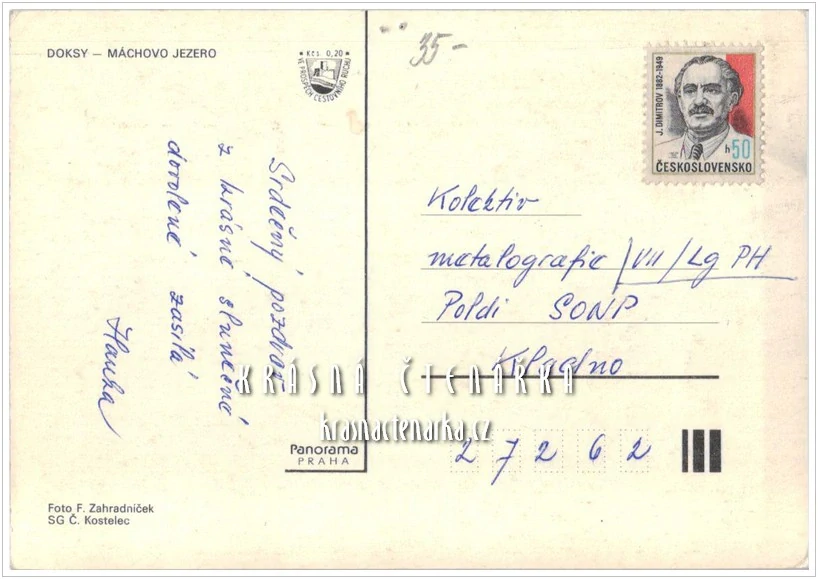 DOKSY — MÁCHOVO JEZERO
Kčs 0,20
VE PROSPĚCH CESTOVNÍHO RUCHU
35-
J. DIMITROV 1882-1949
h 50
ČESKOSLOVENSKO
Srdečný pozdrav
z krásné slunečné
dovolené zasílá
Kolektiv
metalografie /VII/Lg PH
Poldi SONP
Kladno
27262
KRÁSNÁ ČTENÁŘKA
krasnactenarka.cz
Panorama
PRAHA
Foto F. Zahradníček
SG Č. Kostelec